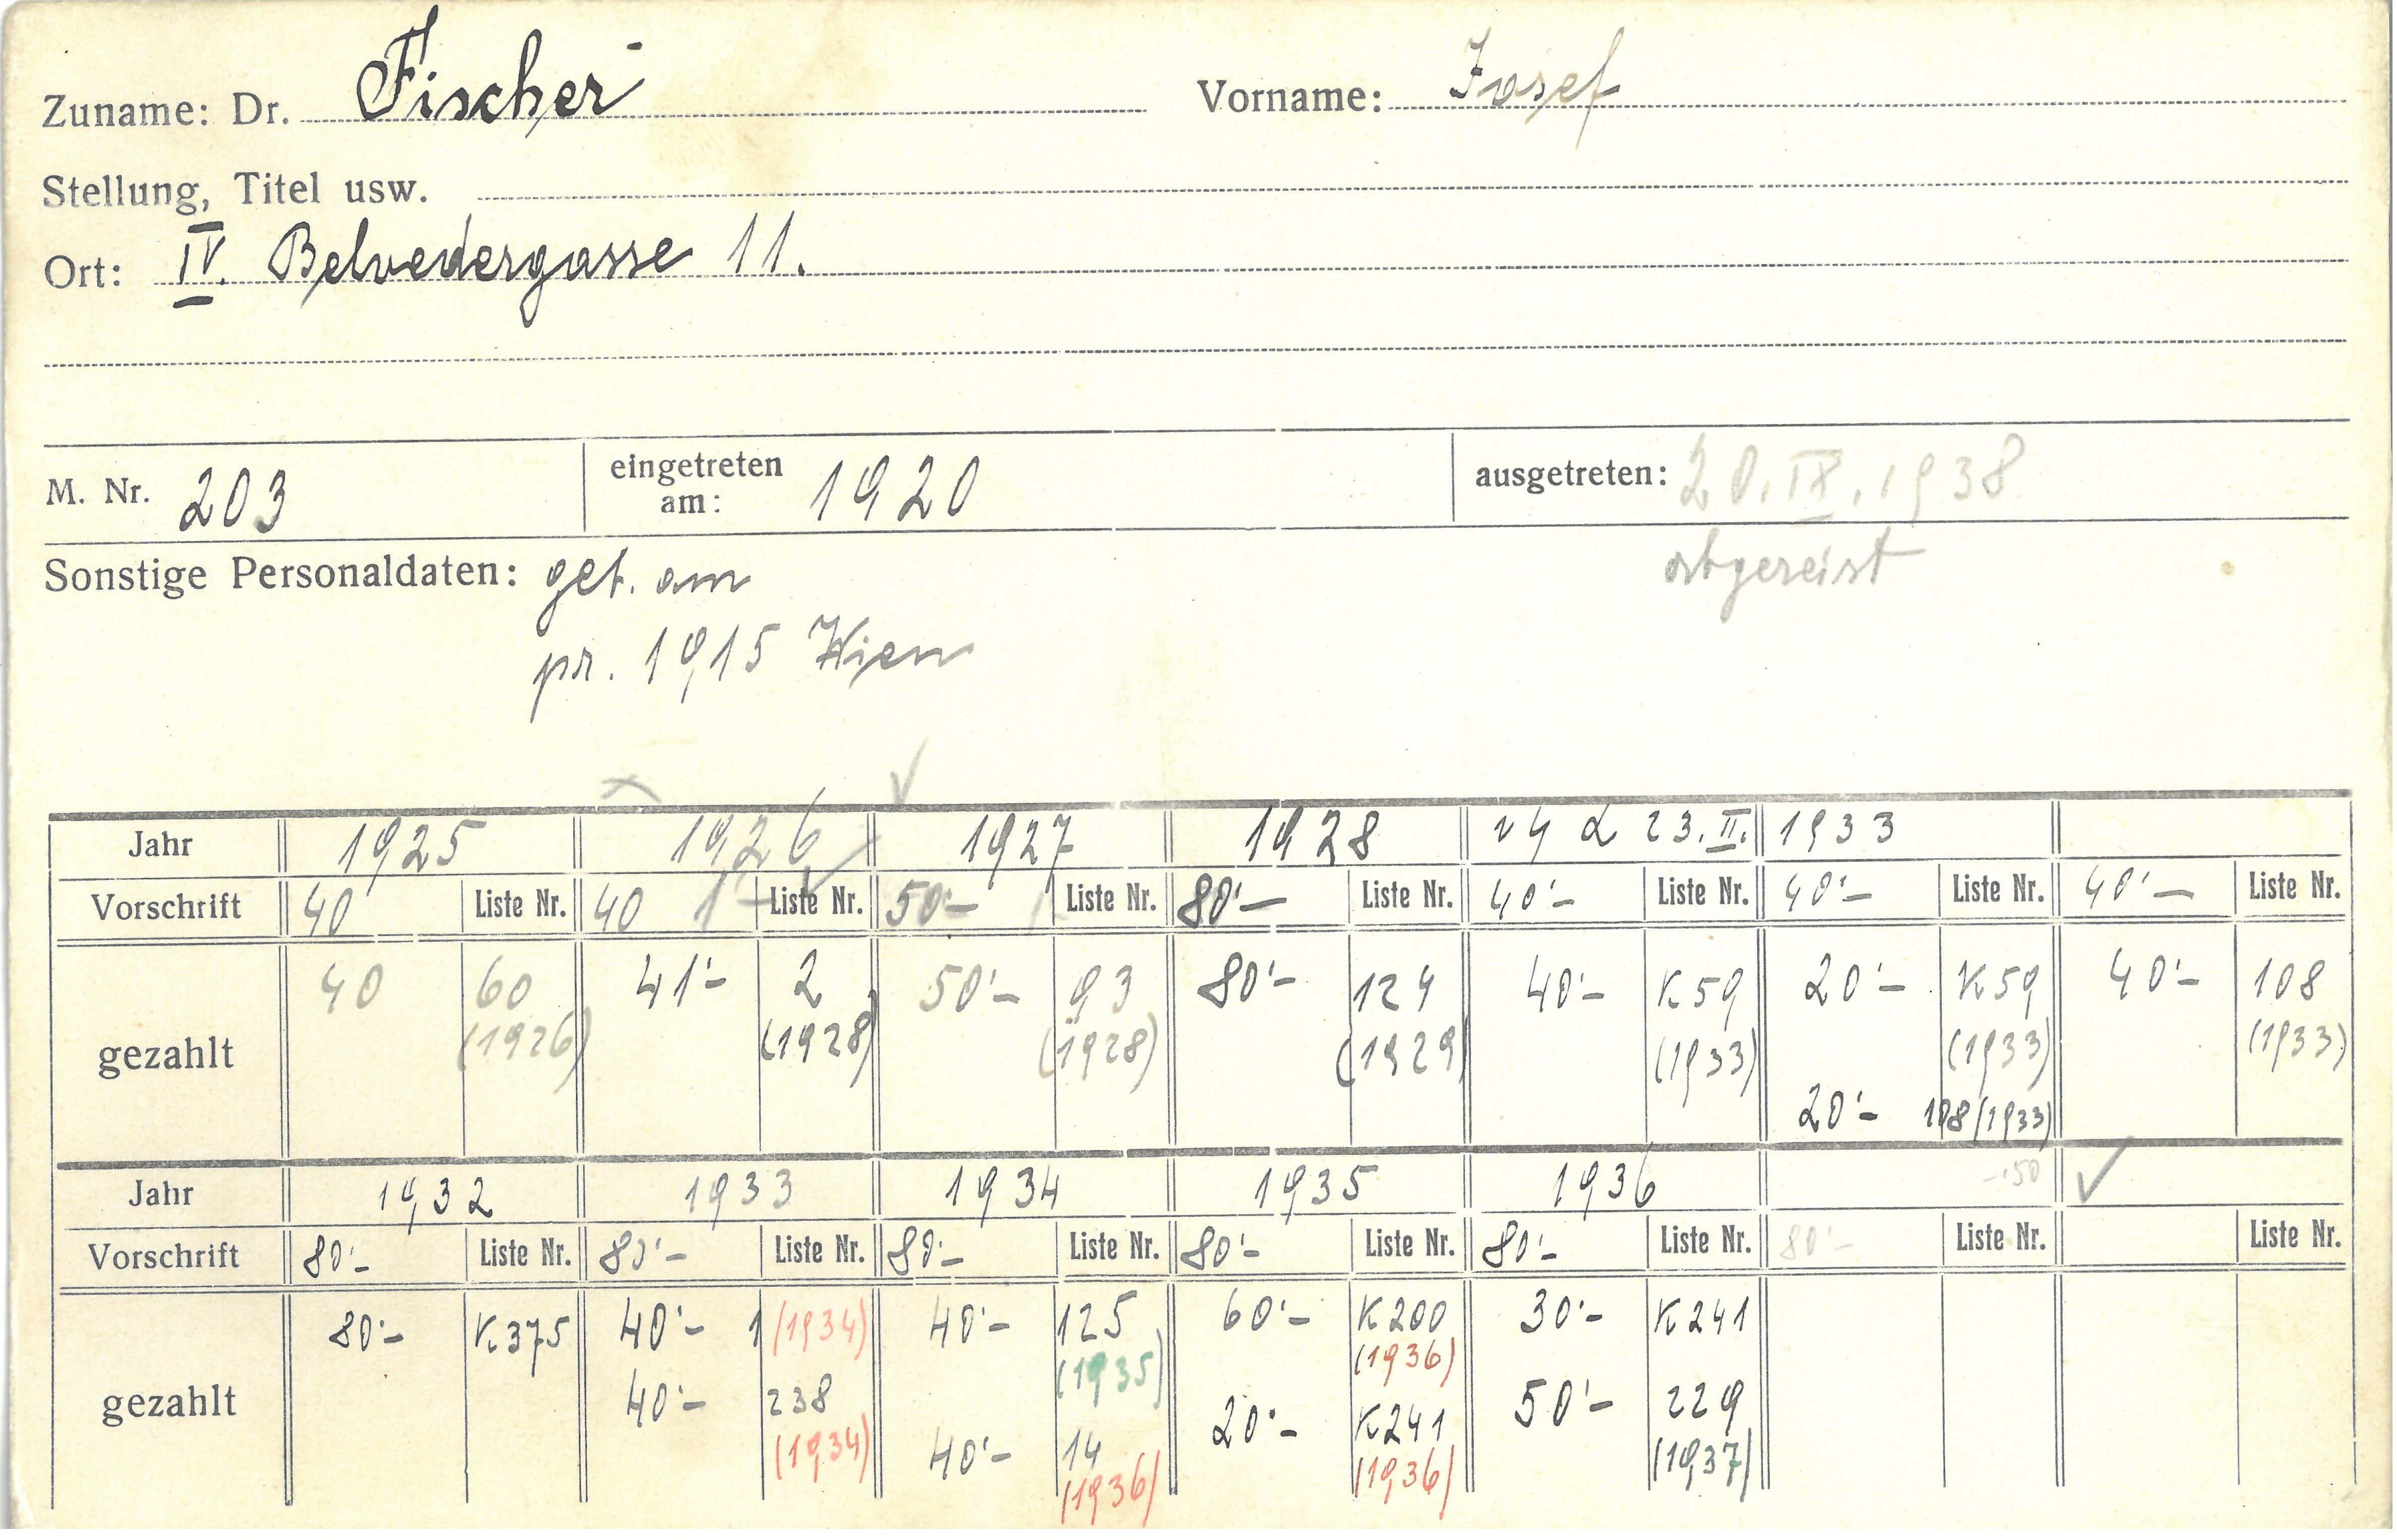 Zuname: Dr. Fischer Vorname: Josef
Stellung, Titel usw.
Ort: IV. Belvedergasse 11.
M. Nr. 203 eingetreten am: 1920 ausgetreten: 20.IX.1938
abgereist
Sonstige Personaldaten: geb. am
pr. 1915 Wien
Jahr 1925 1926 1927 1928 23.II. 1933
Vorschrift 40 Liste Nr. 40 1'- Liste Nr. 50'- Liste Nr. 80'- Liste Nr. 40'- Liste Nr. 40'- Liste Nr. 40'- Liste Nr.
gezahlt 40 60 (1926) 41'- 2 (1928) 50'- 93 (1928) 80'- 124 (1929) 40'- K59 (1933) 20'- K59 (1933) 40'- 108 (1933)
20'- 108 (1933)
Jahr 1932 1933 1934 1935 1936 -'50
Vorschrift 80'- Liste Nr. 80'- Liste Nr. 80'- Liste Nr. 80'- Liste Nr. 80'- Liste Nr. 80'- Liste Nr. Liste Nr.
gezahlt 80'- K375 40'- 1 (1934) 40'- 125 (1935) 60'- K200 (1936) 30'- K241
40'- 238 (1934) 40'- 14 (1936) 20'- K241 (1936) 50'- 229 (1937)